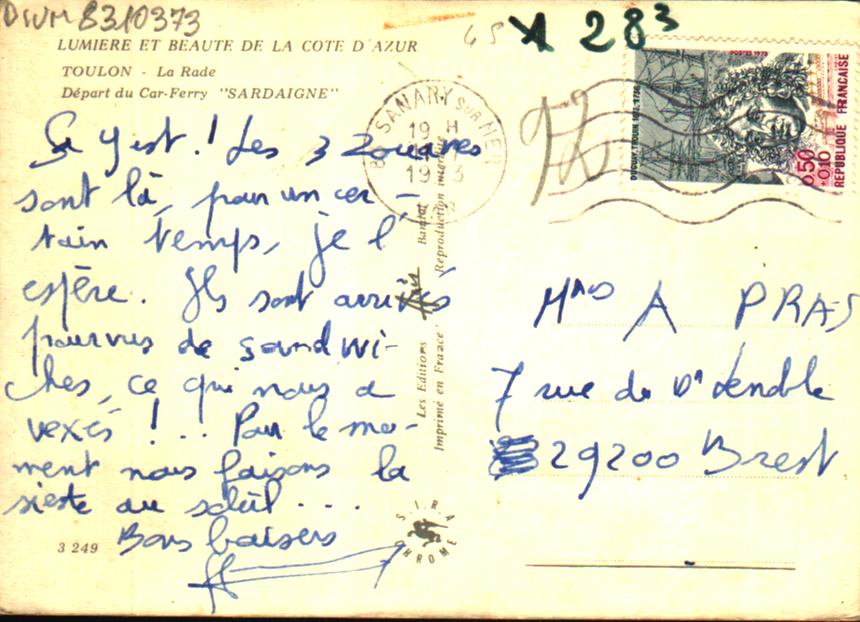 DIVM 8310373
45 X 283
LUMIERE ET BEAUTE DE LA COTE D'AZUR
TOULON - La Rade
Départ du Car-Ferry "SARDAIGNE"
Ça y est ! Les 3 Zouaves
sont là, pour un cer-
tain temps, je l'
espère. Ils sont arrivés
pourvus de sandwi-
ches, ce qui nous a
vexés !... Pour le mo-
ment nous faisons la
sieste au soleil....
Bons baisers
3 249
SANARY SUR MER
19 H
19 3
Les Editions
Imprimé en France
Reproduction interdite
S.I.R.A.
CHROME
POSTES 1973
0,50
+0,10
REPUBLIQUE FRANCAISE
A PRAS
7 rue du Dr Lenoble
29200 Brest